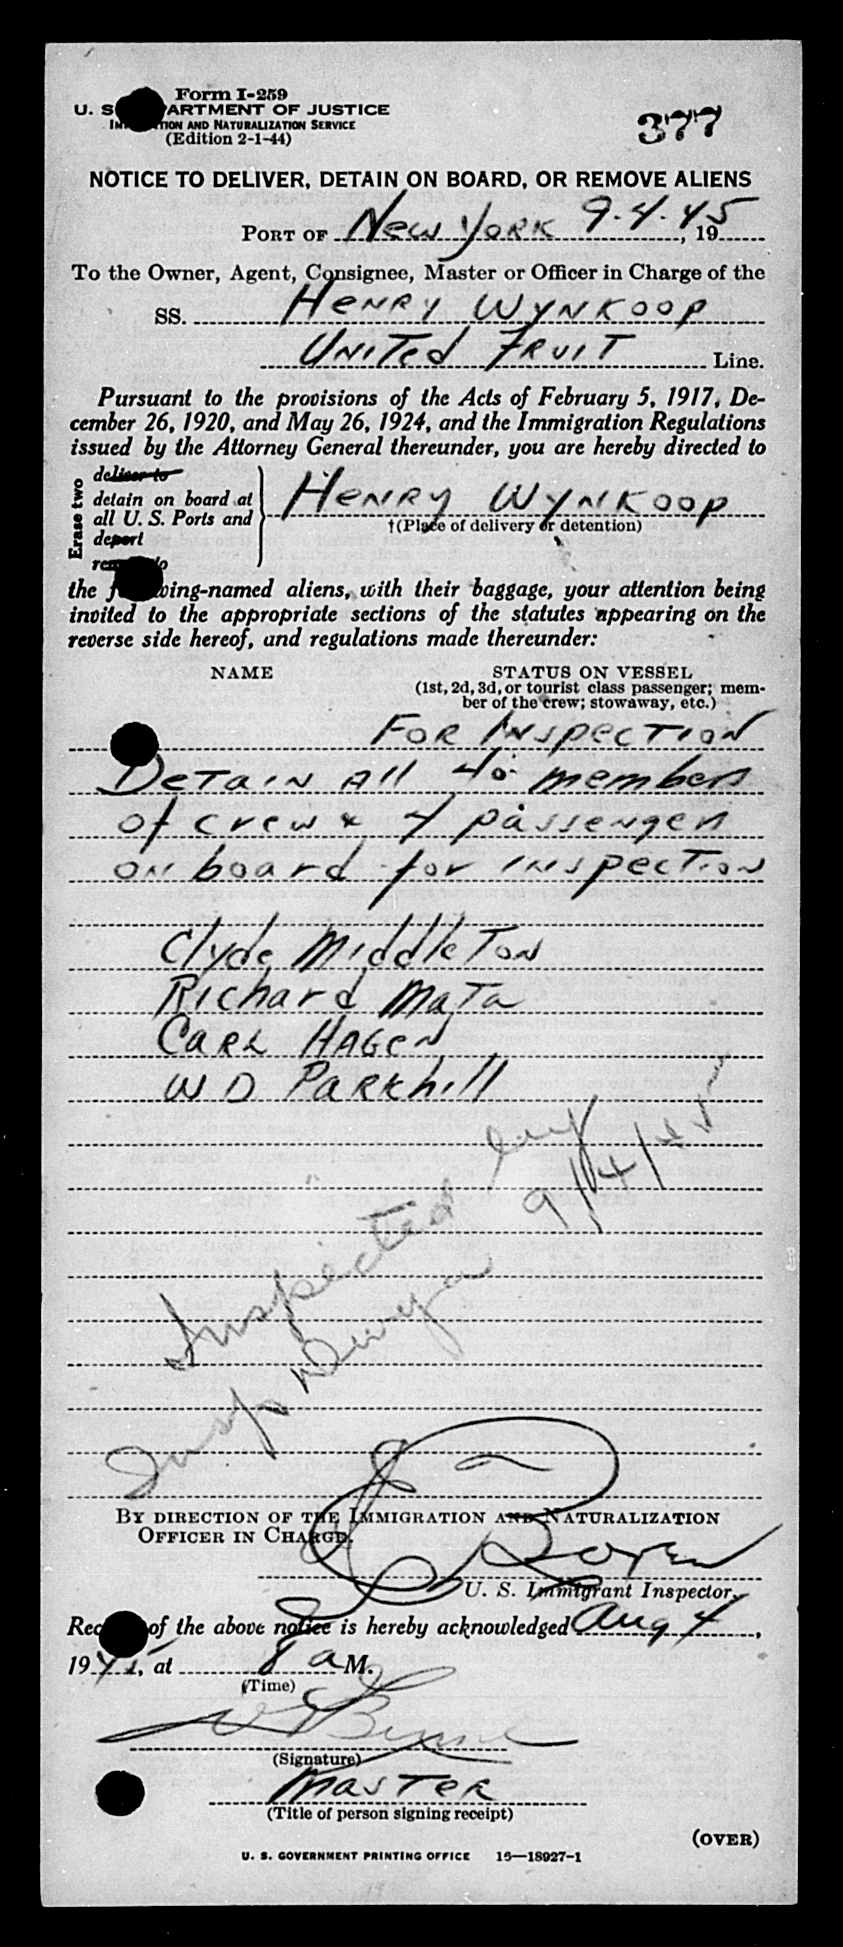 Form I-259
U. S. DEPARTMENT OF JUSTICE
IMMIGRATION AND NATURALIZATION SERVICE
(Edition 2-1-44)
377
NOTICE TO DELIVER, DETAIN ON BOARD, OR REMOVE ALIENS
PORT OF New York 9.4.45, 19
To the Owner, Agent, Consignee, Master or Officer in Charge of the
SS. Henry Wynkoop
United Fruit Line.
Pursuant to the provisions of the Acts of February 5, 1917, De-
cember 26, 1920, and May 26, 1924, and the Immigration Regulations
issued by the Attorney General thereunder, you are hereby directed to
Erase two
deliver to
detain on board at
all U. S. Ports and
deport
remove to
Henry Wynkoop
†(Place of delivery or detention)
the following-named aliens, with their baggage, your attention being
invited to the appropriate sections of the statutes appearing on the
reverse side hereof, and regulations made thereunder:
NAME STATUS ON VESSEL
(1st, 2d, 3d, or tourist class passenger; mem-
ber of the crew; stowaway, etc.)
For Inspection
Detain all 40 members
of crew & 4 passengers
on board for inspection
Clyde Middleton
Richard Mata
Carl Hagen
W D Parkhill
Inspected by
Insp 9/4/45
BY DIRECTION OF THE IMMIGRATION AND NATURALIZATION
OFFICER IN CHARGE.
U. S. Immigrant Inspector.
Receipt of the above notice is hereby acknowledged Aug 4,
1945, at 8 a M.
(Time)
(Signature)
Master
(Title of person signing receipt)
(OVER)
U. S. GOVERNMENT PRINTING OFFICE 16—18927-1